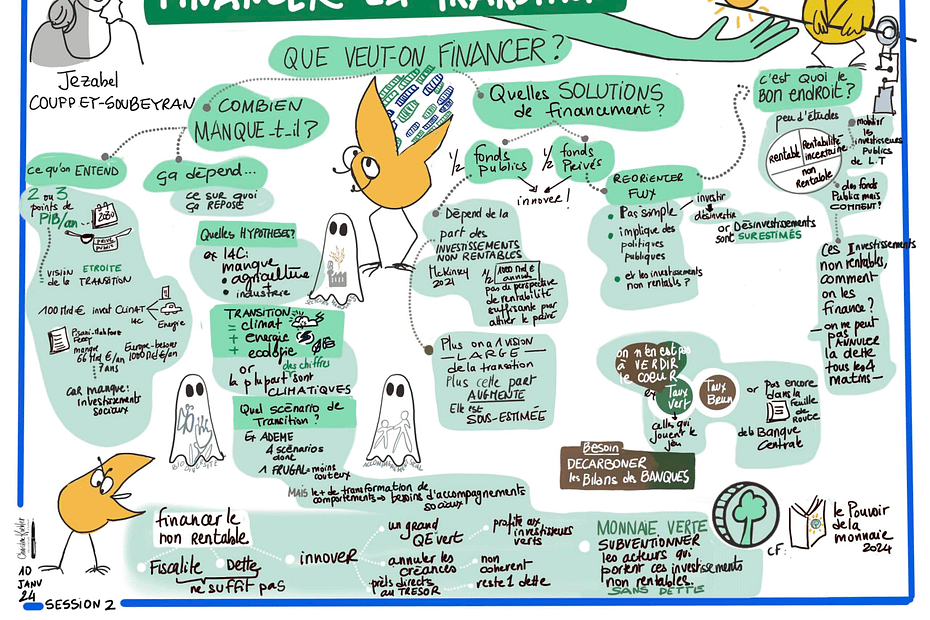 FINANCER LA TRANSITION
Jézabel
COUPPET-SOUBEYRAN
QUE VEUT-ON FINANCER?
COMBIEN
MANQUE-t-il?
ce qu'on ENTEND
2 ou 3
points de
PIB/an
2030
PRIVÉ
PUBLIC
VISION ETROITE
de la TRANSITION
100 Md € invest CLIMAT
HC
Energie
Pisani-Mahfouz
manque
66 Md €/an
7 ans
Europe-besoins
1000 Md €/an
CAR manque:
investissements
sociaux
ça dépend...
ce sur quoi
ça REPOSE
Quelles HYPOTHESES?
ex I4C:
manque
• agriculture
• industrie
TRANSITION
= climat
+ énergie
+ écologie
or des chiffres
la plupart sont
CLIMATIQUES
Quel scénario de
Transition?
Ex ADEME
4 scénarios
dont
1 FRUGAL = moins
couteux
MAIS le + de transformation de
comportements → besoins d'accompagnements
sociaux
BIODIVERSITÉ
Quelles SOLUTIONS
de financement?
1/2 fonds
publics
1/2 fonds
Privés
innover!
Dépend de la
part des
INVESTISSEMENTS
NON RENTABLES
McKinsey
2021
1/2 1000 Md €
annuel
pas de perspective
de rentabilité
suffisante pour
attirer le privé
Plus on a 1 vision
— LARGE —
de la transition
Plus cette part
AUGMENTE
Elle est
SOUS-ESTIMÉE
REORIENTER
FLUX
• Pas simple
• implique des
politiques
publiques
• et les investissements
non rentables?
investir
désinvestir
or DÉSINVESTISSEMENTS
sont SURESTIMÉS
c'est quoi le
BON ENDROIT?
peu d'études
Rentable
Rentabilité
incertaine
non
Rentable
mobiliser
les
investisseurs
Publics
de L.T
des fonds
Publics mais
COMMENT?
Ces Investissements
non rentables,
comment
on les
finance?
— on ne peut
pas
ANNULER
la dette
tous les 4
matins —
on n'en est pas
à VERDIR
le coeur
ex
Taux
vert
Taux
Brun
celles qui
jouent le
jeu
or Pas encore
dans la
Feuille
de
Route
de la Banque
Centrale
Besoin
DECARBONER
les Bilans des BANQUES
financer le
non Rentable
Fiscalité
Dette
ne suffit pas
innover
un grand
QE vert
profite aux
investisseurs
verts
annuler les
créances
non
coherent
reste 1 dette
prêts directs
au TRESOR
MONNAIE VERTE
SUBVENTIONNER
les acteurs qui
portent ces investissements
non rentables.
SANS DETTE
CF:
le Pouvoir
de la
monnaie
2024
10
JANV
24
SESSION 2